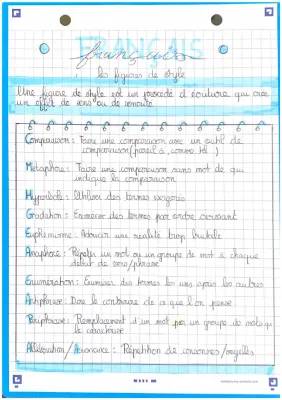 FRANÇAIS
français
les figures de style
Une figure de style est un procédé d'écriture qui crée
un effet de sens ou de sonorité.
Comparaison : Faire une comparaison avec un outil de
comparaison (pareil à, comme, tel)
Métaphore : Faire une comparaison sans mot de qui
indique la comparaison
Hyperbole : Utiliser des termes exagérés
Gradation : Enumérer des termes par ordre croissant
Euphémisme : Adoucir une réalité trop brutale
Anaphore : Répéter un mot ou un groupe de mot à chaque
début de vers/phrase
Enumération : Enumérer des termes les uns après les autres
Antiphrase : Dire le contraire de ce que l'on pense
Périphrase : Remplacement d'un mot par un groupe de mots qui
le caractérise
Allitération/Assonance : Répétition de consonnes/voyelles